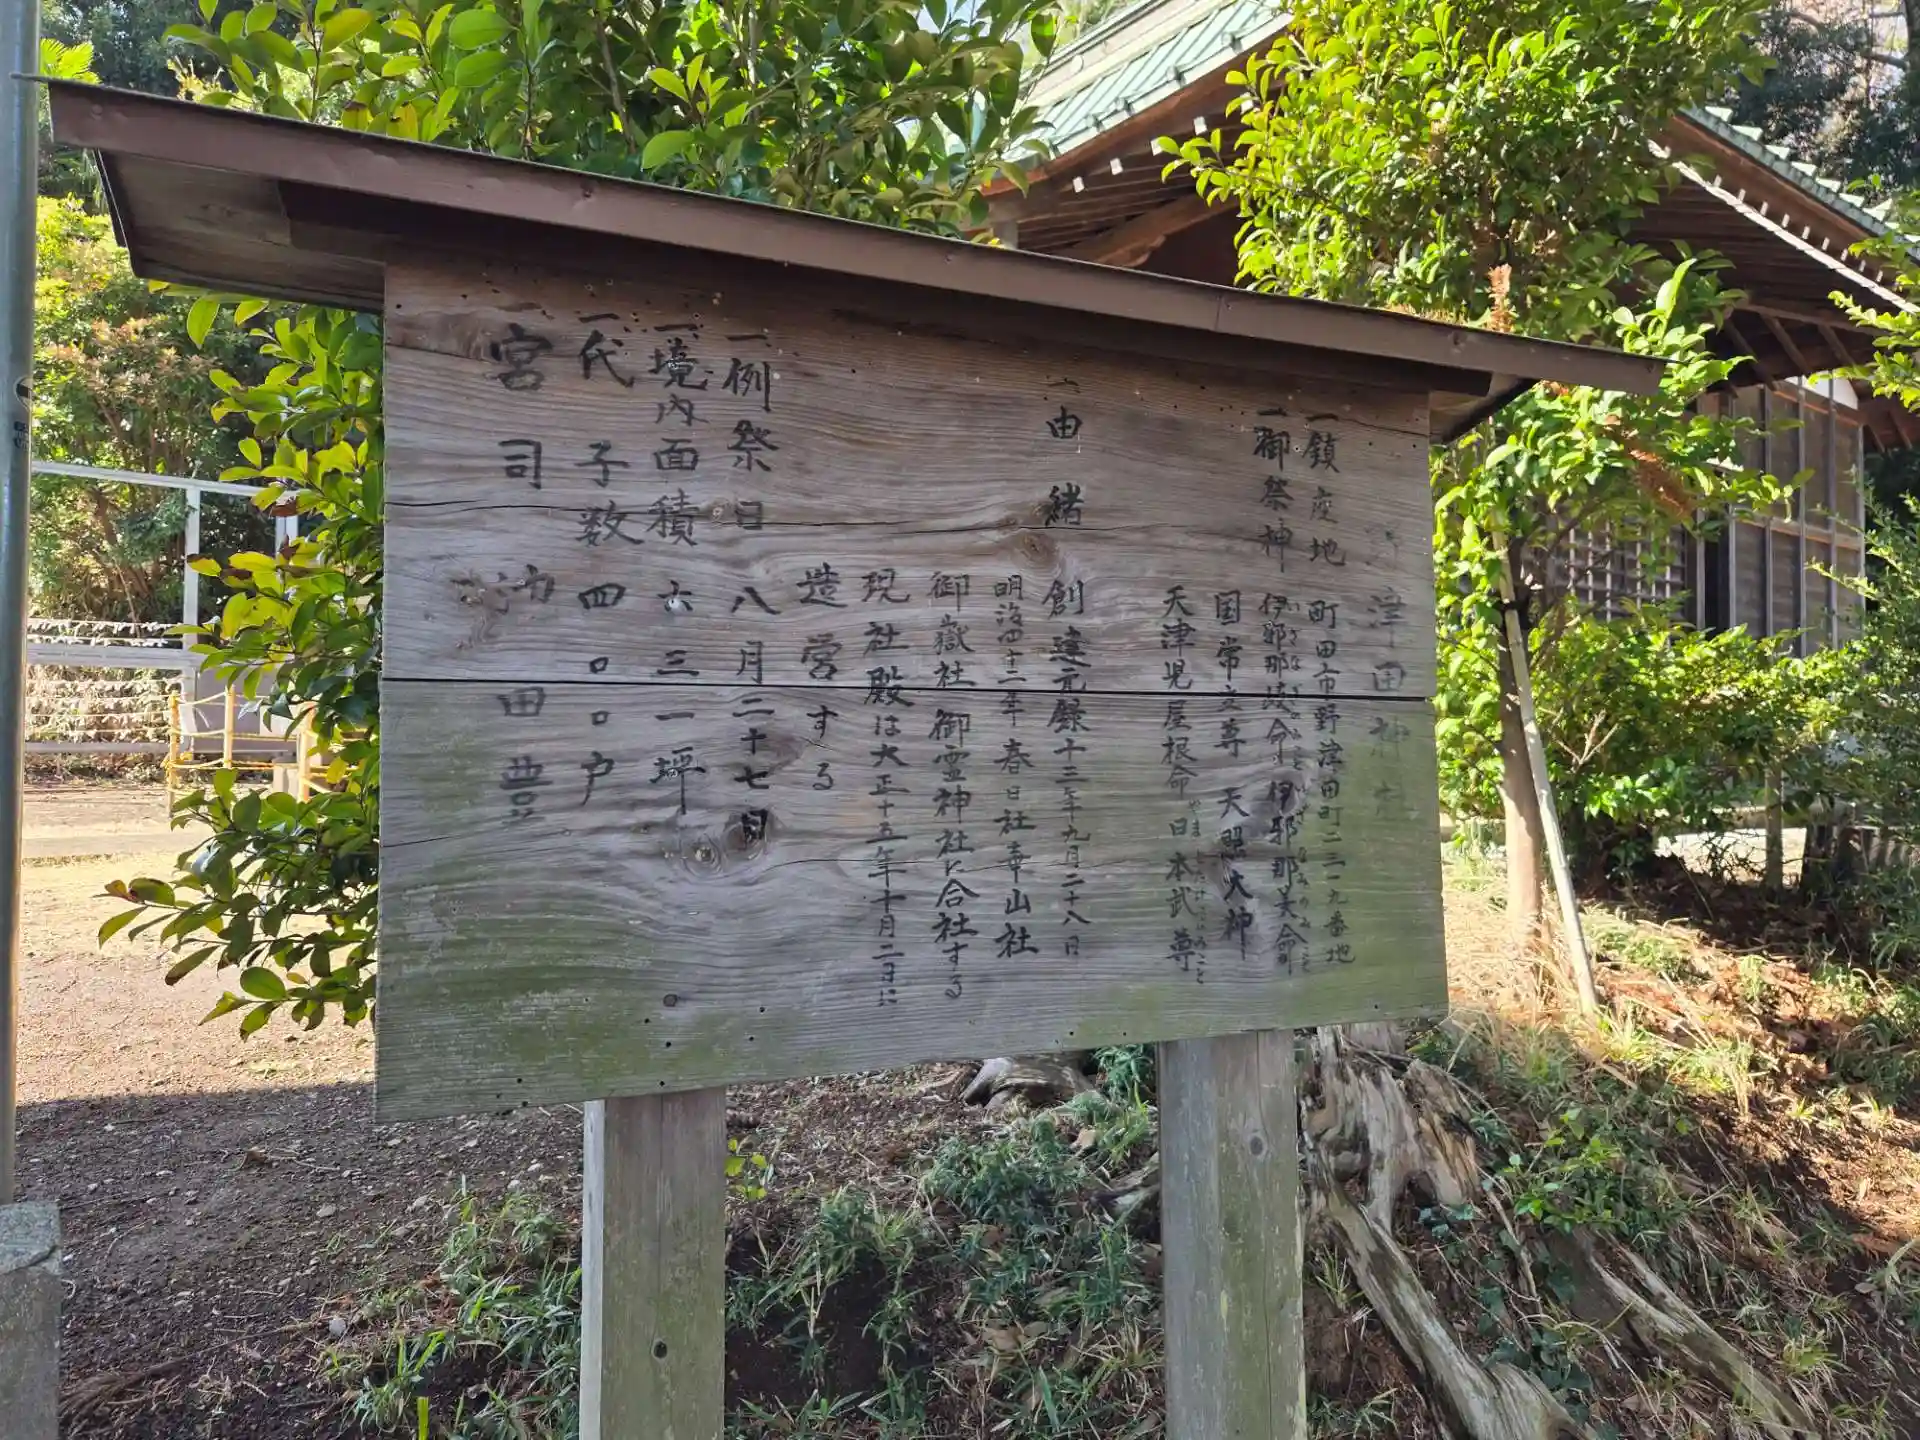 津田神社
一鎮座地　町田市野津田町二三一九番地
一御祭神　伊邪那岐命　伊邪那美命
いざなぎのみこと　いざなみのみこと
国常立尊　天照大神
天津児屋根命　日本武尊
やまとたけるのみこと
一由緒　創建元録十三年九月二十八日
明治四十二年春日社幸山社
御嶽社御霊神社と合社する
現社殿は大正十五年十月二日に
造営する
一例祭日　八月二十七日
一境内面積　六三一坪
一代子数　四〇〇戸
一宮司　池田豊